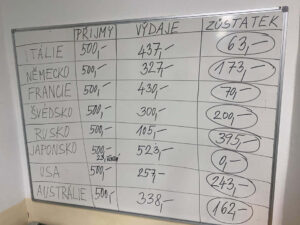 PŘIJMY VÝDAJE ZŮSTATEK
ITÁLIE 500,- 437,- 63,-
NĚMECKO 500,- 327,- 173,-
FRANCIE 500,- 430,- 70,-
ŠVÉDSKO 500,- 300,- 200,-
RUSKO 500,- 105,- 395,-
JAPONSKO 500,- 523,- 0,-
23,
USA 500,- 257,- 243,-
AUSTRÁLIE 500,- 338,- 162,-